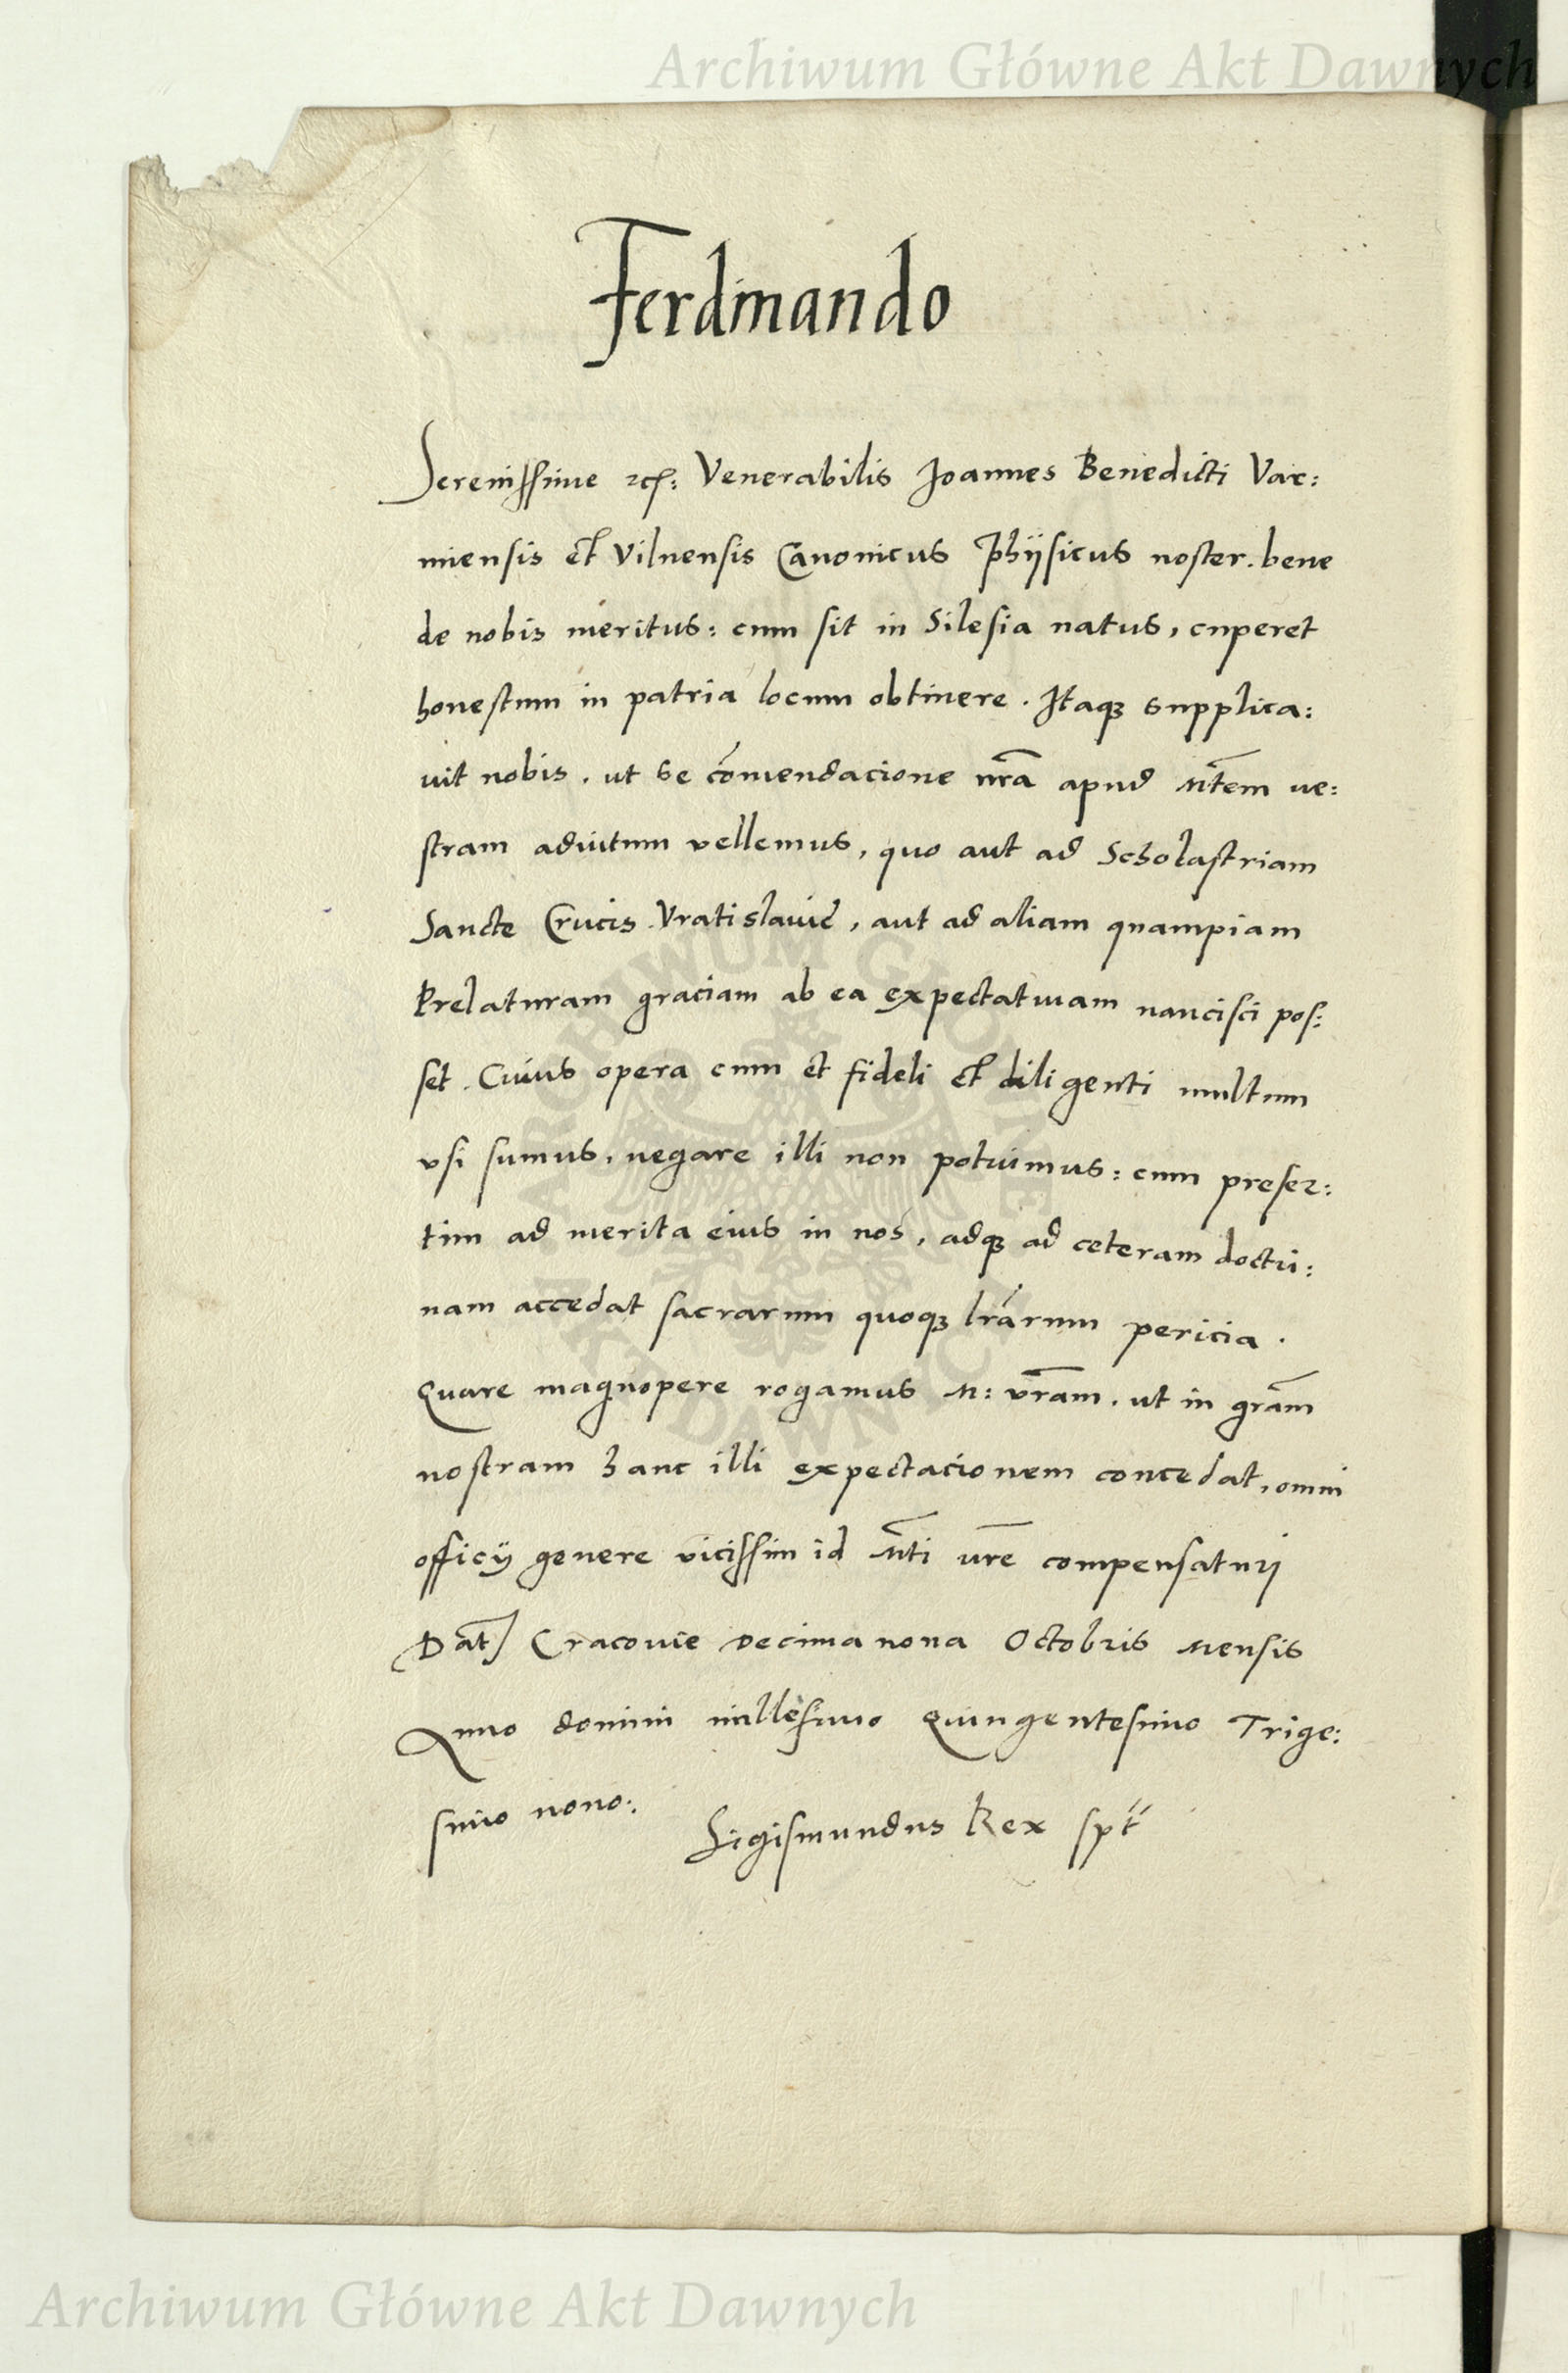 Archiwum Główne Akt Dawnych
Ferdinando
Serenissime etc: Venerabilis Joannes Benedicti Var:
miensis et Vilnensis Canonicus Phÿsicus noster. bene
de nobis meritus: cum sit in Silesia natus, cuperet
honestum in patria locum obtinere. Itaqꝫ supplica:
uit nobis. ut se cōmendacione nr̄a apud Mt̄em ue:
stram adiutum vellemus, quo aut ad Scholastriam
Sancte Crucis Vratislauie, aut ad aliam quampiam
Prelaturam graciam ab ea expectatiuam nancisci pos:
set. Cuius opera cum et fideli et diligenti multum
vsi sumus, negare illi non potuimus: cum preser:
tim ad merita eius in nos, adqꝫ ad ceteram doctri:
nam accedat sacrarum quoqꝫ lr̄arum pericia.
Quare magnopere rogamus M: vr̄am. ut in gr̄am
nostram hanc illi expectacionem concedat, omni
officÿ genere vicissim id Mt̄i vr̄e compensaturi
Dat̄ Cracouie decima nona Octobris mensis
Anno domini millesimo Quingentesimo Trige:
simo nono:
Sigismundus Rex spt
ARCHIWUM GŁÓWNE
AKT DAWNYCH
Archiwum Główne Akt Dawnych